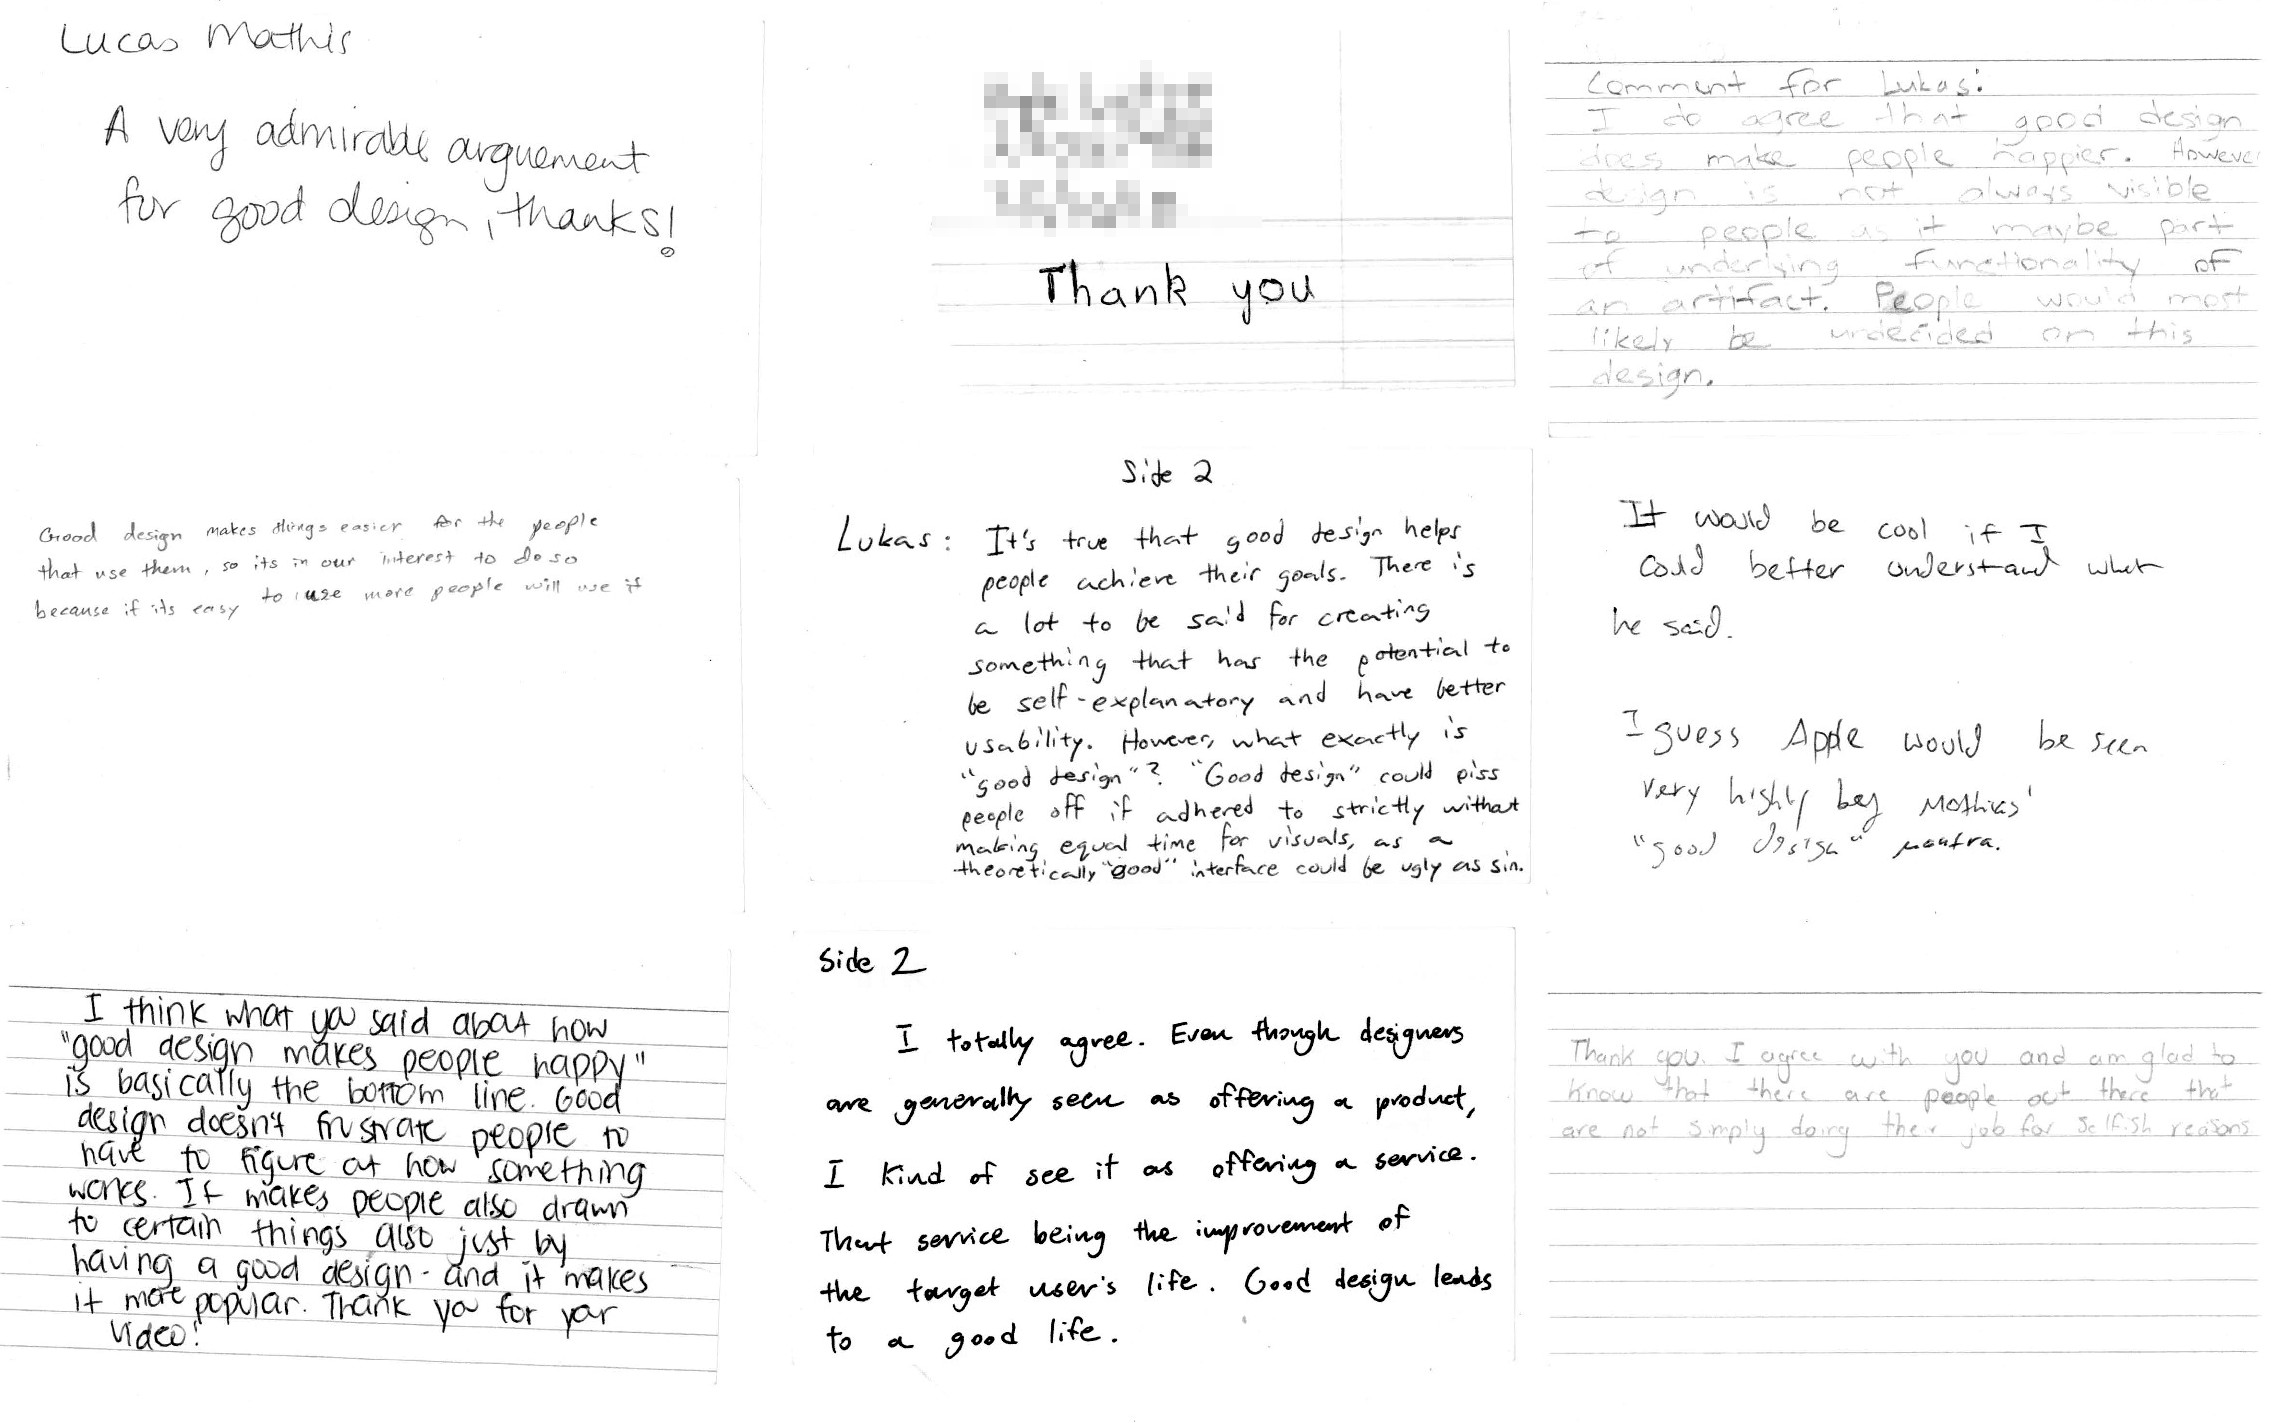 Lucas Mathis
A very admirable arguement
for good design, thanks!
Thank you
Comment for Lukas:
I do agree that good design
does make people happier. Howeve
design is not always visible
to people as it maybe part
of underlying functionality of
an artifact. People would most
likely be undecided on this
design.
Good design makes things easier for the people
that use them, so its in our interest to do so
because if its easy to use more people will use it
Side 2
Lukas: It's true that good design helps
people achieve their goals. There is
a lot to be said for creating
something that has the potential to
be self-explanatory and have better
usability. However, what exactly is
"good design"? "Good design" could piss
people off if adhered to strictly without
making equal time for visuals, as a
theoretically "good" interface could be ugly as sin.
It would be cool if I
could better understand what
he said.
I guess Apple would be seen
very highly by Mathias'
"good design" mantra.
I think what you said about how
"good design makes people happy"
is basically the bottom line. Good
design doesn't frustrate people to
have to figure out how something
works. It makes people also drawn
to certain things also just by
having a good design - and it makes
it more popular. Thank you for your
video!
Side 2
I totally agree. Even though designers
are generally seen as offering a product,
I kind of see it as offering a service.
That service being the improvement of
the target user's life. Good design leads
to a good life.
Thank you. I agree with you and am glad to
know that there are people out there that
are not simply doing their job for selfish reasons